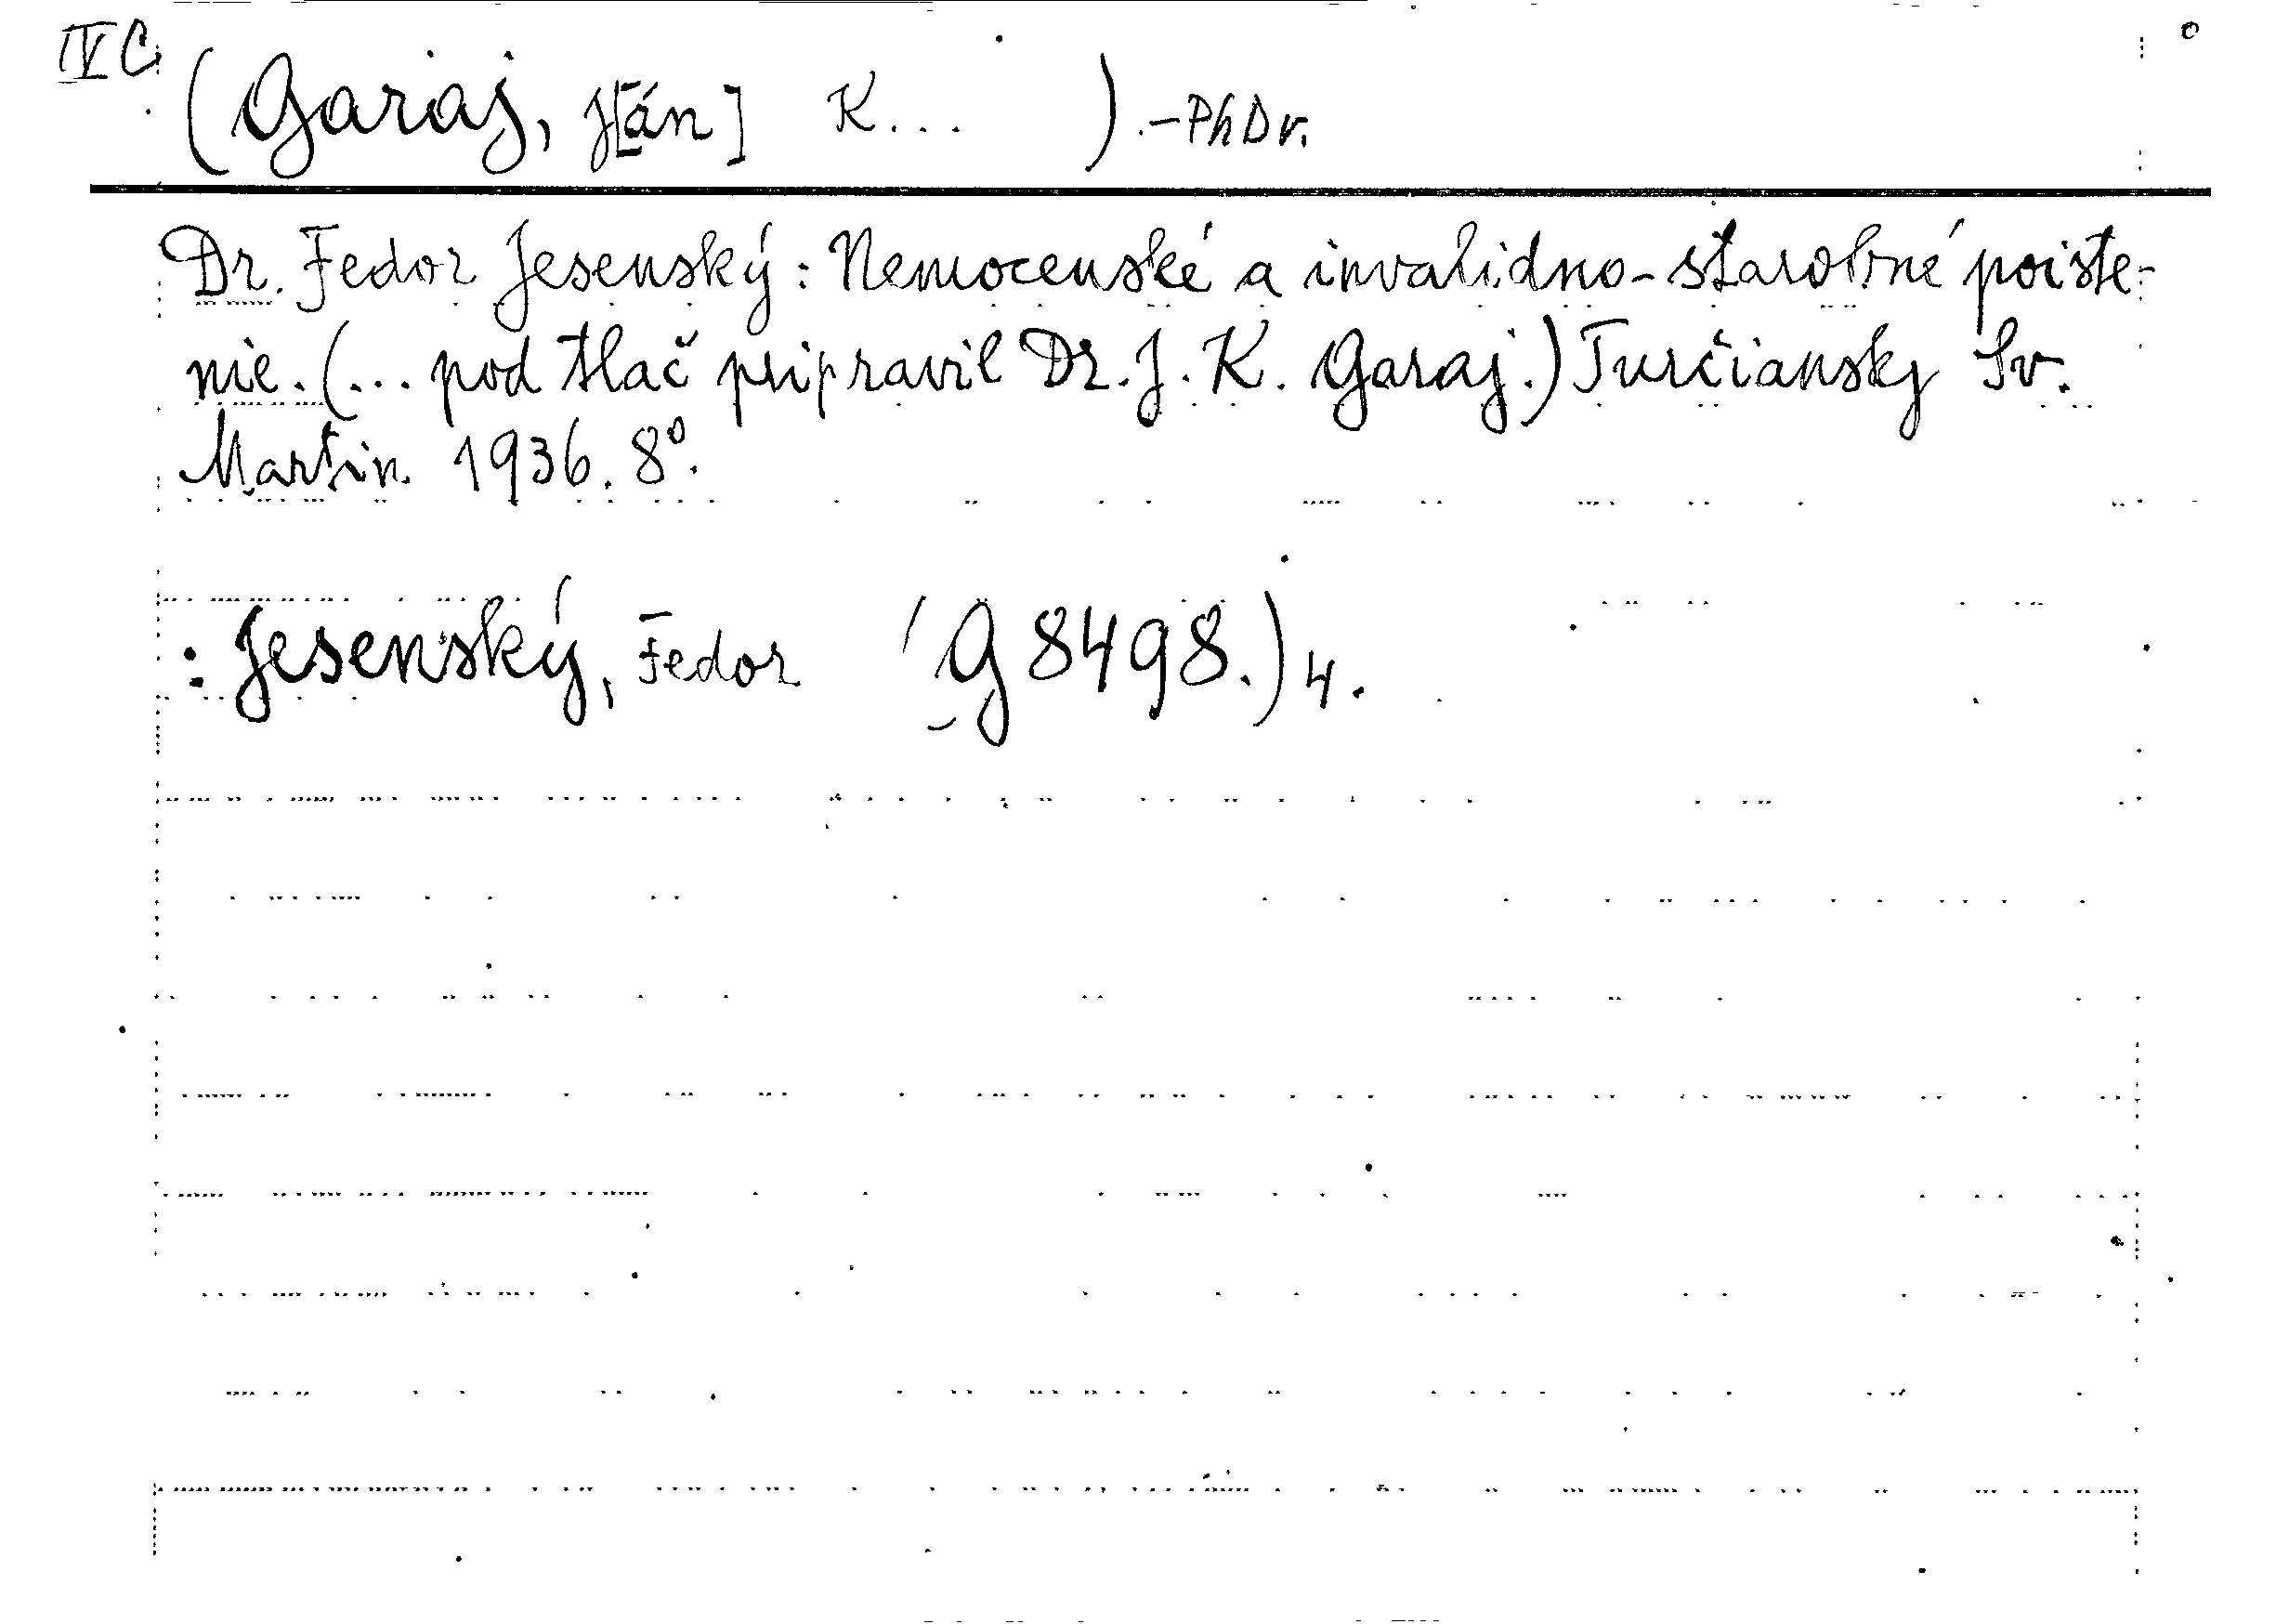 IV C
(Garaj, J[án] K... ).-PhDr.
Dr. Fedor Jesenský: Nemocenské a invalidno-starobné poiste-
nie. (... pod tlač pripravil Dr. J. K. Garaj.) Turčiansky Sv.
Martin. 1936. 8°.
: Jesenský, Fedor (G 8498.) 4.